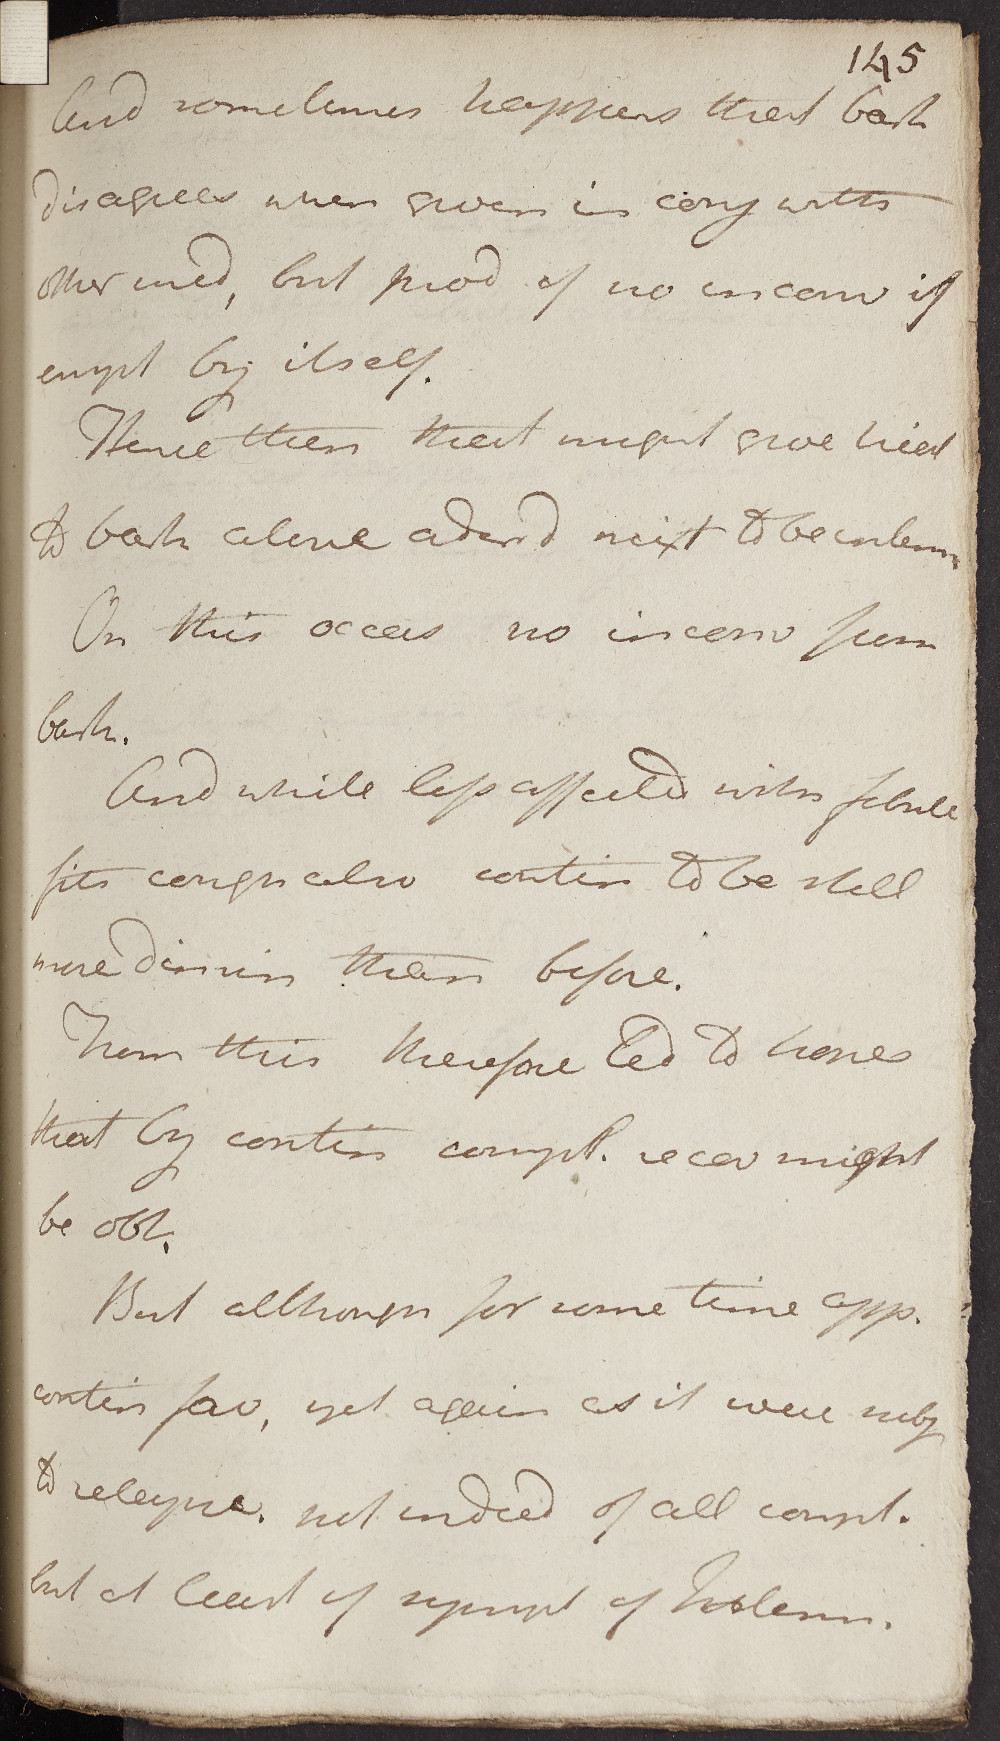 145
And sometimes happens that bark
disagrees when given in conj with
other med, but prod of no inconv if
empl by itself.
Hence then that might give trial
to bark alone adver'd next to be
On this occas no inconv from
bark.
And while less affected with febrile
fits cough also contin to be still
more dimin than before.
From this therefore led to hopes
that by contin compl. recov might
be obt.
But although for some time app.
contin fav, yet again as it were subj
to relapse. not indeed of all compl.
but at least of sympt of